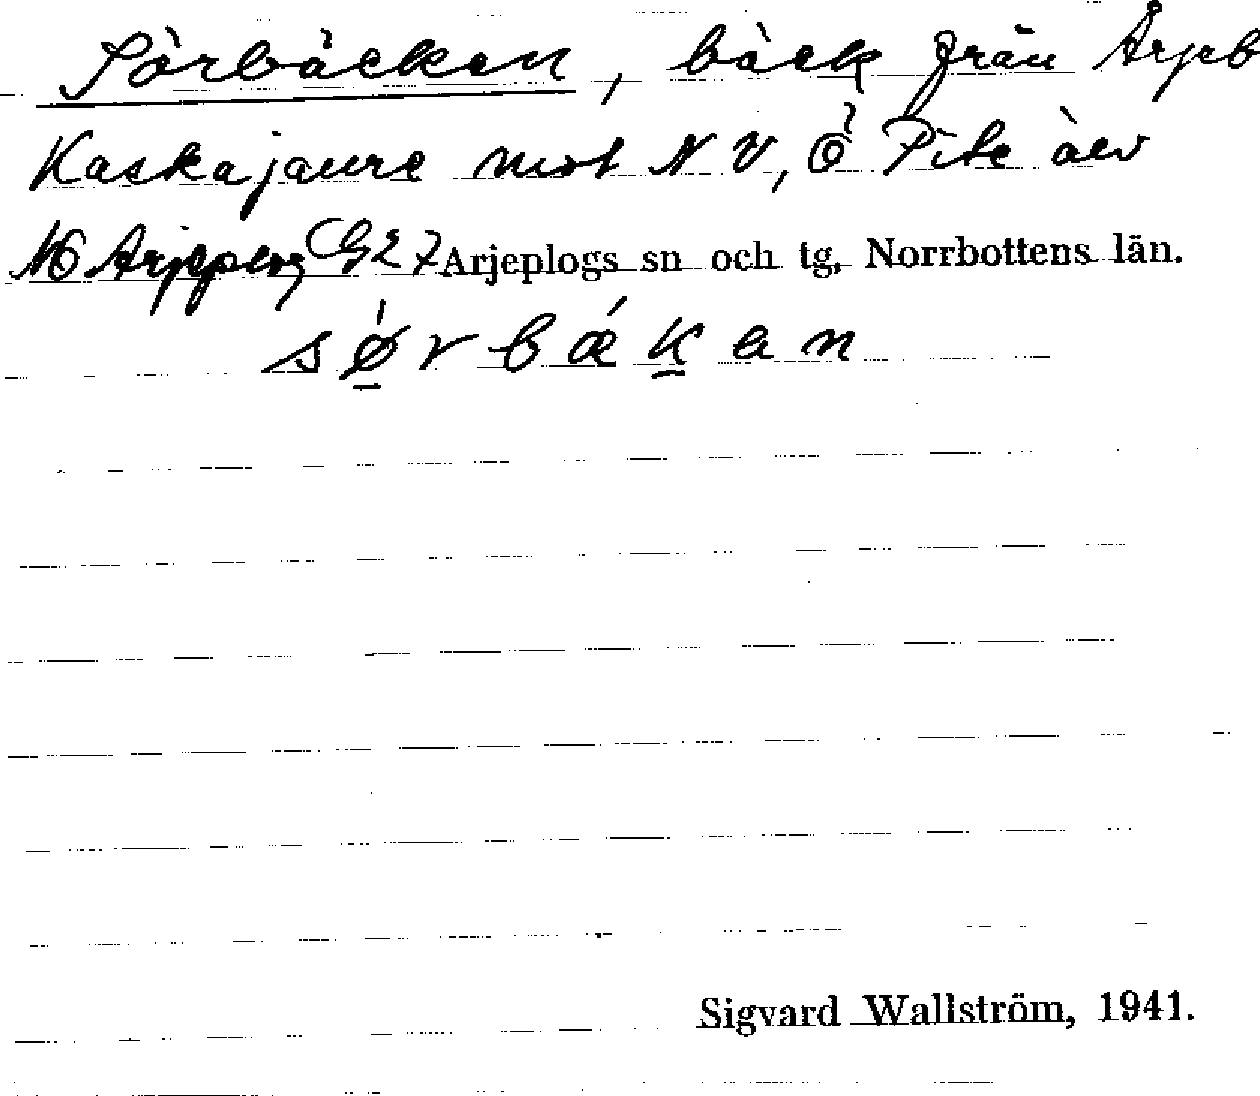 Sörbäcken, bäck från Arjeb
Kaskajaure mot N V, Ö Pite älv
NO Arjeplog G27 Arjeplogs sn och tg, Norrbottens län.
sǿrbǽkan
Sigvard Wallström, 1941.